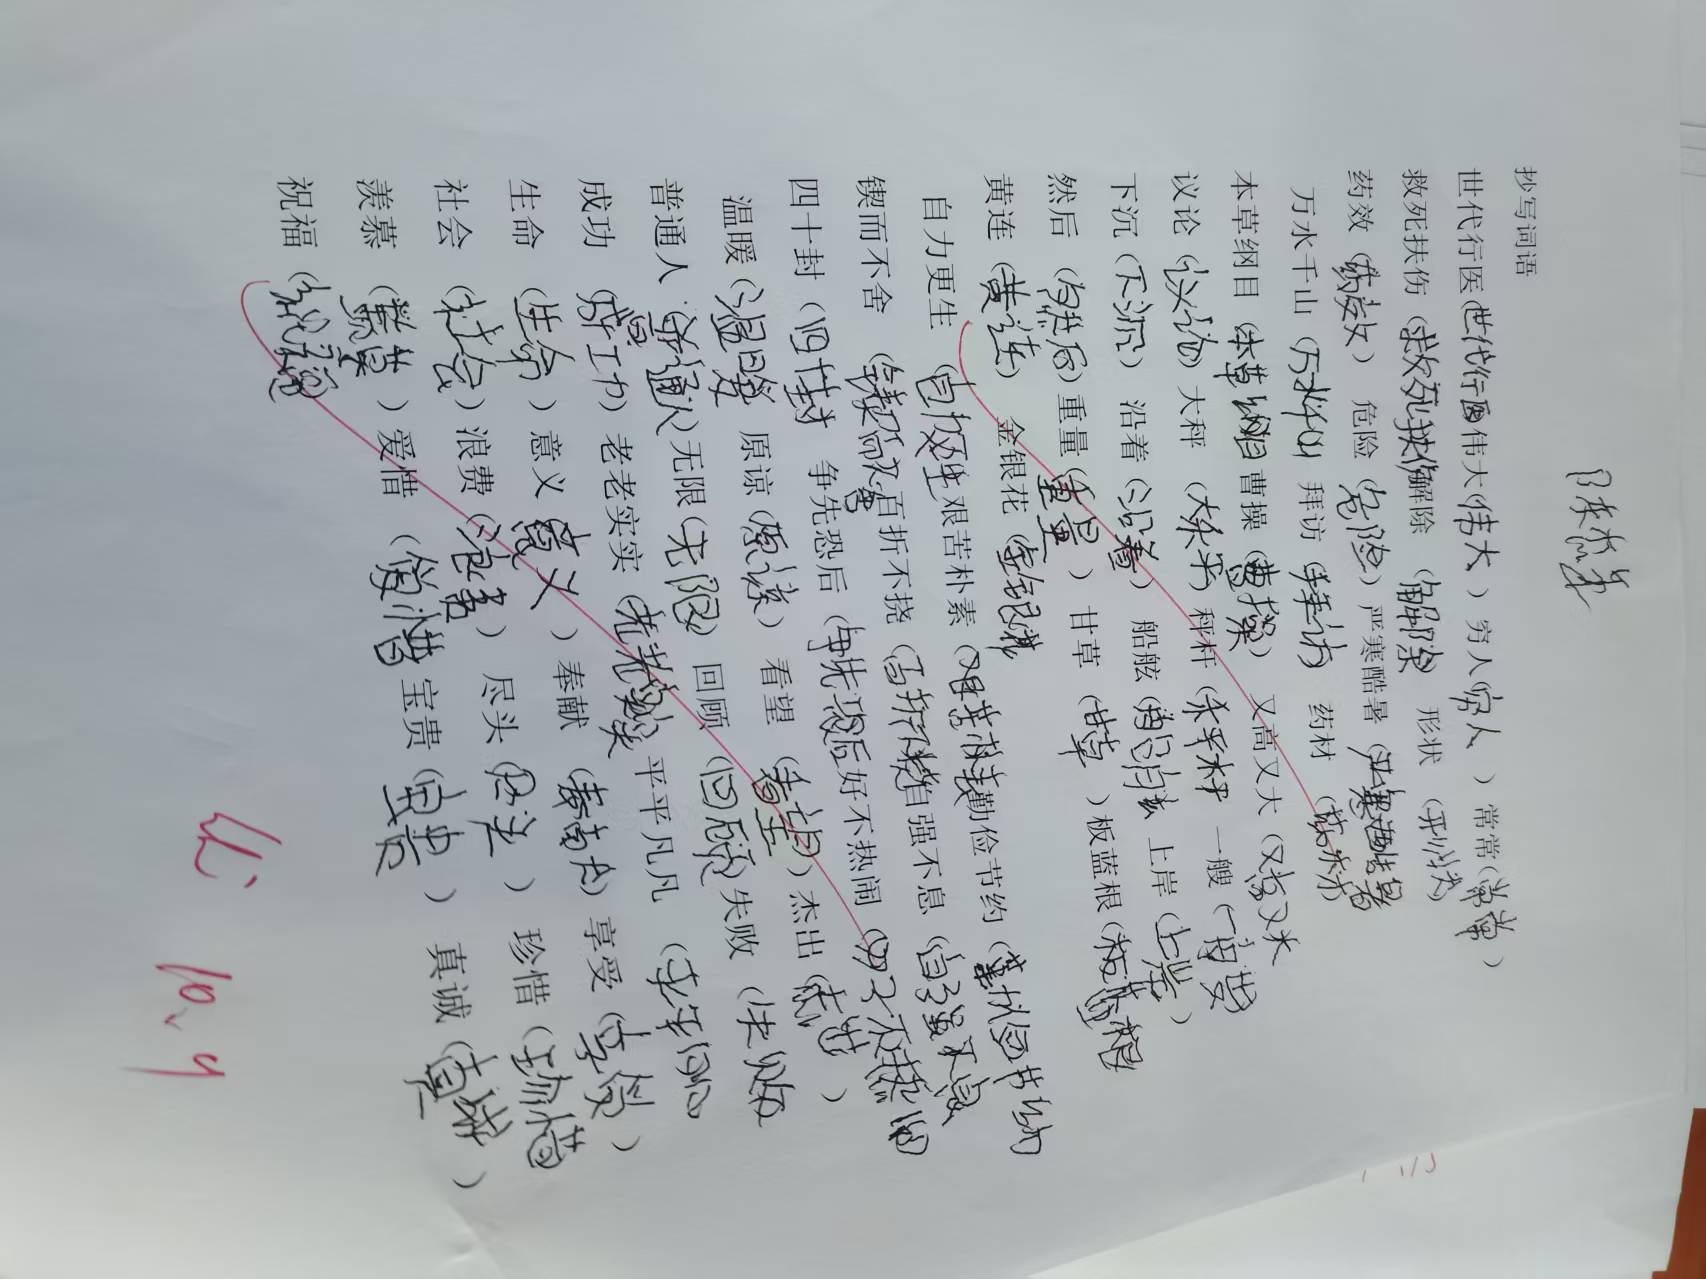 抄写词语
世代行医(世代行医)伟大(伟大)穷人(穷人)常常(常常)
救死扶伤(救死扶伤)解除(解除)形状(形状)
药效(药效)危险(危险)严寒酷暑(严寒酷暑)
万水千山(万水千山)拜访(拜访)药材(药材)
本草纲目(本草纲目)曹操(曹操)又高又大(又高又大)
议论(议论)大秤(大秤)秤杆(秤杆)一艘(一艘)
下沉(下沉)沿着(沿着)船舷(船舷)上岸(上岸)
然后(然后)重量(重量)甘草(甘草)板蓝根(板蓝根)
黄连(黄连)金银花(金银花)
自力更生(自力更生)艰苦朴素(艰苦朴素)勤俭节约(勤俭节约)
锲而不舍(锲而不舍)百折不挠(百折不挠)自强不息(自强不息)
四十封(四十封)争先恐后(争先恐后)好不热闹(好不热闹)
温暖(温暖)原谅(原谅)看望(看望)杰出()
普通人(普通人)无限(无限)回顾(回顾)失败(失败)
成功(成功)老老实实(老老实实)平平凡凡()
生命(生命)意义(意义)奉献(奉献)享受(享受)
社会(社会)浪费(浪费)尽头()珍惜(珍惜)
羡慕(羡慕)爱惜(爱惜)宝贵(宝贵)真诚(真诚)
祝福(祝福)
10.9